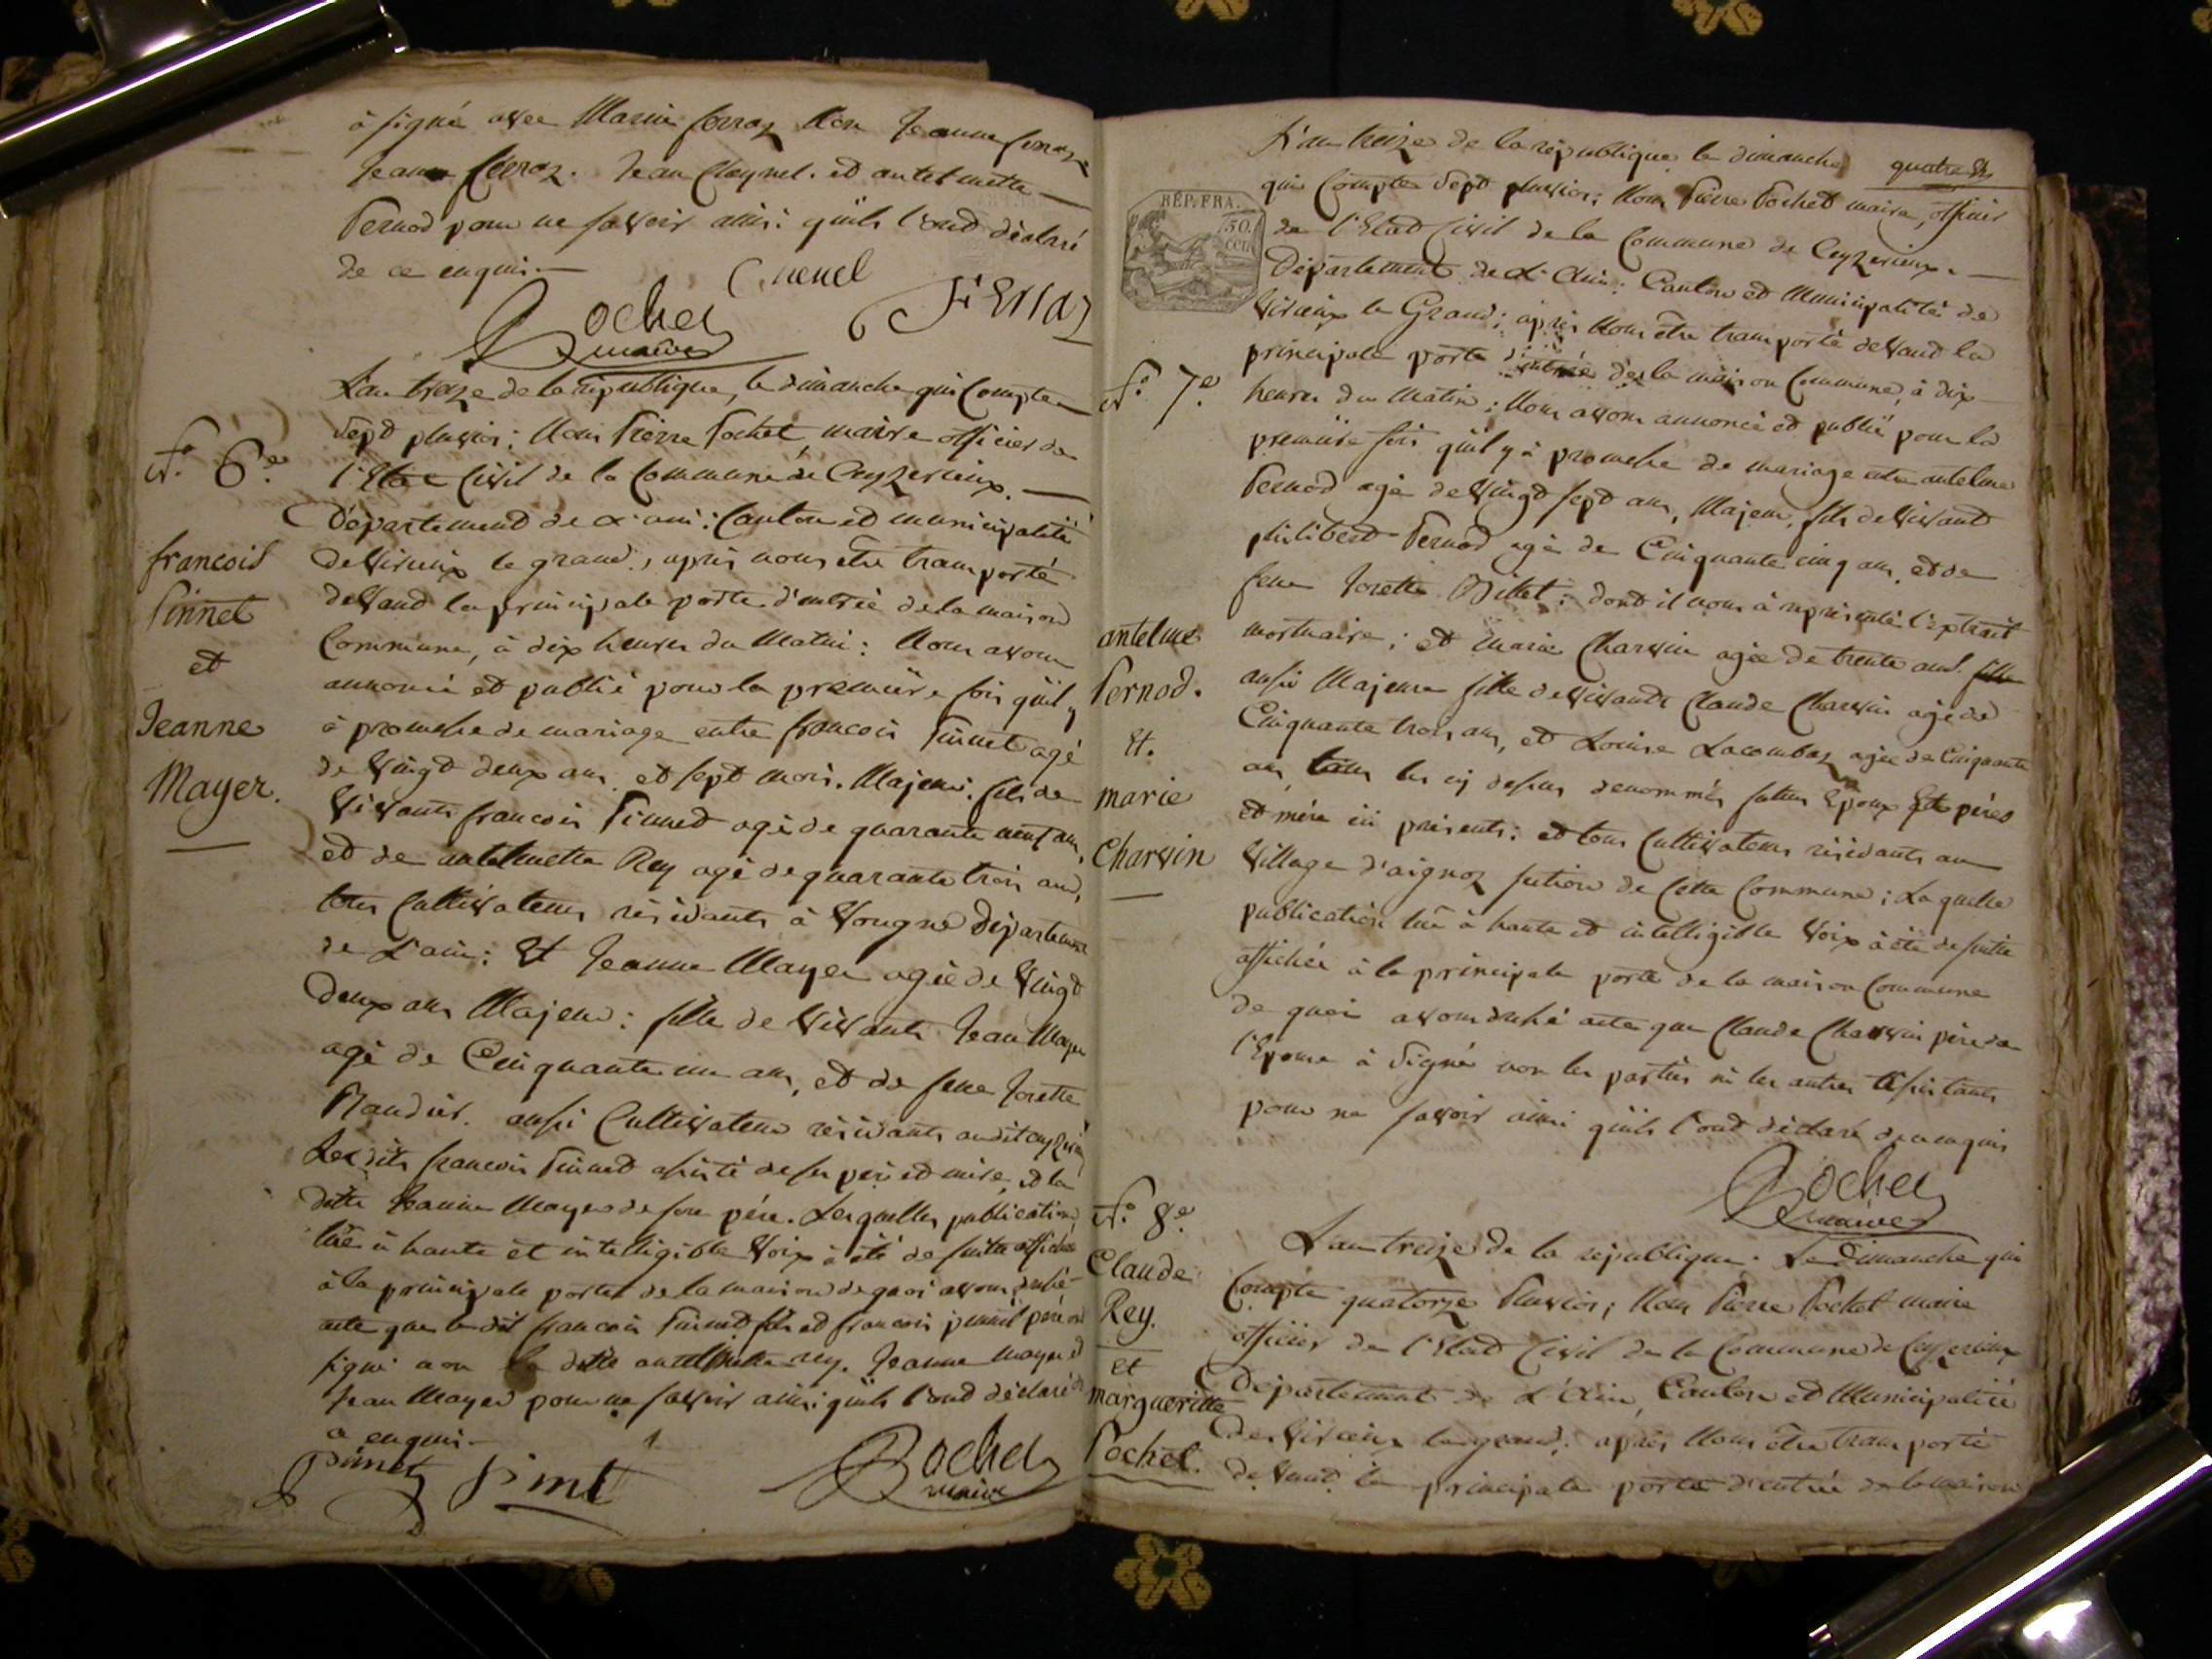 à signé avec Marin ferraz Non Jeanne ferraz
Jeanne ferraz. Jean Claynel. et antelmette
Pernod pour ne savoir ainsi quils l'ont déclaré
de ce enquis.
Chenel
Ferraz
Pochet
maire
L'an treize de la république, le dimanche qui Compte
Sept pluvios; Nous Pierre Pochet maire officier de
l'Etat Civil de la Commune de Ceyzerieux.
N.° 6.e
Département de L'ain: Canton et municipalité
de Virieux le grand, après nous être transporté
devand la principale porte d'entrée de la maison
Commune, à dix heures du Matin: Nous avons
annoncé et publié pour la première fois quil y
à promesse de mariage entre francois Pinnet agé
de Vingt deux ans et sept mois. Majeur. fils de
Vivants francois Pinned agé de quarante neuf ans,
et de antelmette Rey agé de quarante trois ans,
tous Cultivateurs résidants à Vongne Département
de L'ain: Et Jeanne Mayer agée de Vingt
Deux ans Majeur: fille de Vivants Jean Mayer
agé de Cinquante un ans, et de feue Josette
aussi Cultivateur résidants audit
Les dits francois Pinned assisté de ses père et mère, et la
ditte Jeanne Mayer de son père. Lesquelles publication,
lüe à haute et intelligible Voix à été de suitte affichée
à la principale porte de la maison de quoi avons dressé
acte que le dit francois Pinned fils et francois pinnet père ont
signé non la ditte antelmette rey. Jeanne mayer et
Jean Mayer pour ne savoir ainsi quils l'ont déclaré de
ce enquis.
francois
Pinnet
et
Jeanne
Mayer.
Pinnet
Pochet
maire
quatre
L'an treize de la république le dimanche
qui Compte Sept pluvios; Nous Pierre Pochet maire, officier
de l'Etat Civil de la Commune de Ceyzerieux.
RÉP. FRA.
50.
Département de L'Ain: Canton et Municipalité de
Virieux le Grand; après Nous être transporté devand la
principale porte d'entrée de la maison Commune, à dix
N.° 7.e
heures du Matin; Nous avons annoncé et publié pour la
première fois quil y à promesse de mariage entre antelme
Pernod agé de Vingt sept ans, Majeur, fils de Vivant
philibert Pernod agé de Cinquante cinq ans, et de
feue Josette Billet; dont il nous à représenté l'extrait
mortuaire; et Marie Charvin agée de trente ans. fille
aussi Majeure fille de Vivants Claude Charvin agé de
Cinquante trois ans, et Louise Lacombaz agée de Cinquante
ans, tous les cy dessus denommés futurs Epoux pères
et mère ici présents: et tous Cultivateurs résidants au
Village d'aignoz section de Cette Commune; Laquelle
publication lüe à haute et intelligible Voix à été de suitte
affichée à la principale porte de la maison Commune
de quoi avons dressé acte que Claude Charvin père de
l'Epouse à Signé non les parties ni les autres assistants
pour ne savoir ainsi quils l'ont déclaré de ce enquis
antelme
Pernod.
Et.
marie
Charvin
Pochet
maire
N.° 8.e
L'an treize de la république. Le Dimanche qui
Compte quatorze Pluvios; Nous Pierre Pochet maire
officier de l'Etat Civil de la Commune de Ceyzerieux
Département de L'Ain, Canton et Municipalité
de Virieux le grand; après Nous être transporté
devand la principale porte d'entrée de la maison
Claude
Rey.
et
margueritte
Pochet.